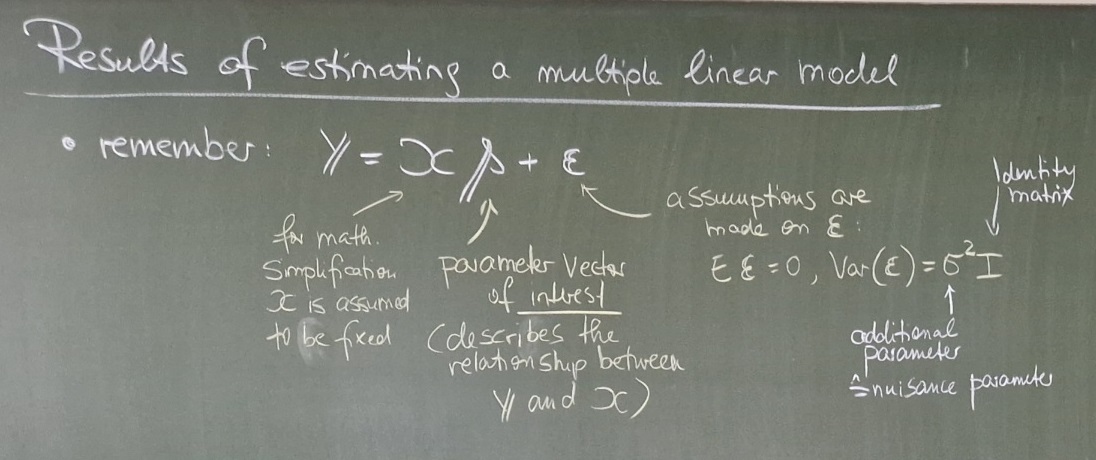 Results of estimating a multiple linear model
• remember: Y = X β + ε
for math.
simplification
X is assumed
to be fixed
parameter vector
of interest
(describes the
relationship between
Y and X)
assumptions are
made on ε:
E ε = 0, Var(ε) = σ² I
Identity
matrix
additional
parameter
≙ nuisance parameter